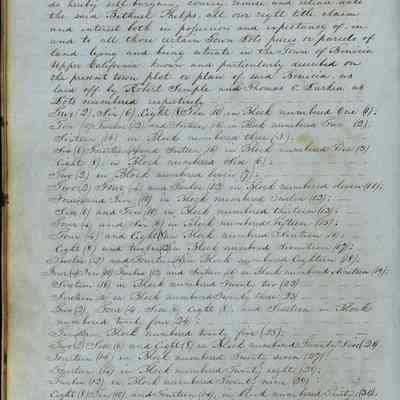 do hereby sell bargain, convey remise and release unto
the said Bethuel Phelps, all our right title claim
and interest both in possession and expectance of, in
and to all those certain Town Lots pieces or parcels of
land lying and being situate in the Town of Benicia
Upper California known and particularly described on
the present town plot or plan of said Benicia, as
laid off by Robert Semple and Thomas O. Larkin as
Lots numbered respectively
Two (2), Six (6), Eight (8) Ten (10) in Block numbered One (1);
Ten (10) Twelve (12) and Sixteen (16) in Block numbered Two (2);
Sixteen (16) in Block numbered three (3);
Six (6) Fourteen (14) and Sixteen (16) in Block numbered Five (5)
Eight (8) in Block numbered Six (6);
Two (2) in Block numbered Seven (7);
Two (2) Four (4) and Twelve (12) in Block numbered eleven (11);
and Ten (10) in Block numbered Twelve (12);
Six (6) and Ten (10) in Block numbered thirteen (13);
Four (4) and Six (6) in Block numbered fifteen (15);
Four (4) and Eight (8) in Block numbered Sixteen (16);
Eight (8) and twelve (12) in Block numbered Seventeen (17);
Twelve (12) and Fourteen (14) in Block numbered Eighteen (18);
Four (4) Ten (10) Twelve (12) and Sixteen (16) in Block numbered Nineteen (19);
Sixteen (16) in Block numbered Twenty two (22)
in Block numbered Twenty three 23
Two (2) Four (4) Six (6) Eight (8) and in Block
numbered twenty four 24;
in Block numbered twenty five (25);
Two (2) Six (6) and Eight (8) in Block numbered Twenty
Fourteen (14) in Block numbered Twenty seven (27);
Fourteen (14) in Block numbered Twenty eight (28);
Twelve (12) in Block numbered Twenty nine (29);
Eight (8) Ten (10) and Fourteen (14), in Block numbered Thirty (30);